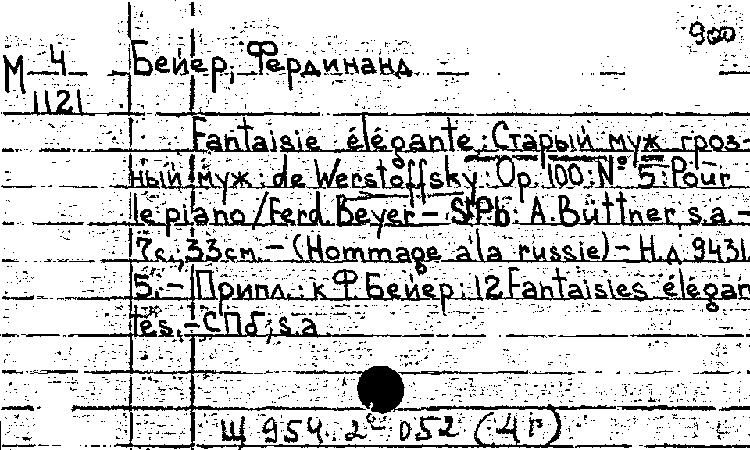 900
М 4
1121
Бейер, Фердинанд
Fantaisie élégante: Старый муж гроз-
ный муж: de Werstoffsky: Op. 100: N° 5: Pour
le piano / Ferd. Beyer – S.Pb: A. Büttner, s.a. –
7с.; 33см. – (Hommage à la russie) – Н.д. 9431.
5. – Припл.: к Ф. Бейер: 12 Fantaisies élégan
tes. – СПб, s.a.
Щ 954. 2 052 (4 г)